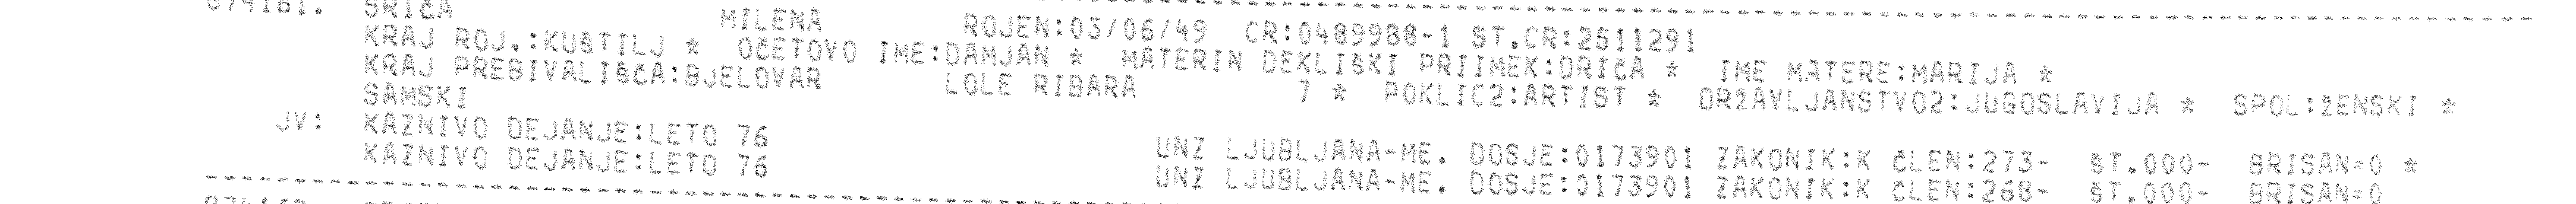 SRIČA MILENA ROJEN:03/06/49 CR:0489988-1 ST.CR:2611291
KRAJ ROJ.:KUŠTILJ * OČETOVO IME:DAMJAN * MATERIN DEKLIŠKI PRIIMEK:DRIČA * IME MATERE:MARIJA *
KRAJ PREBIVALIŠČA:BJELOVAR LOLE RIBARA 7 * POKLIC2:ARTIST * DRŽAVLJANSTVO2:JUGOSLAVIJA * SPOL:ŽENSKI *
SAMSKI
JV: KAZNIVO DEJANJE:LETO 76 UNZ LJUBLJANA-ME. DOSJE:0173901 ZAKONIK:K ČLEN:273- ŠT.000- BRISAN=0 *
KAZNIVO DEJANJE:LETO 76 UNZ LJUBLJANA-ME. DOSJE:0173901 ZAKONIK:K ČLEN:268- ŠT.000- BRISAN=0